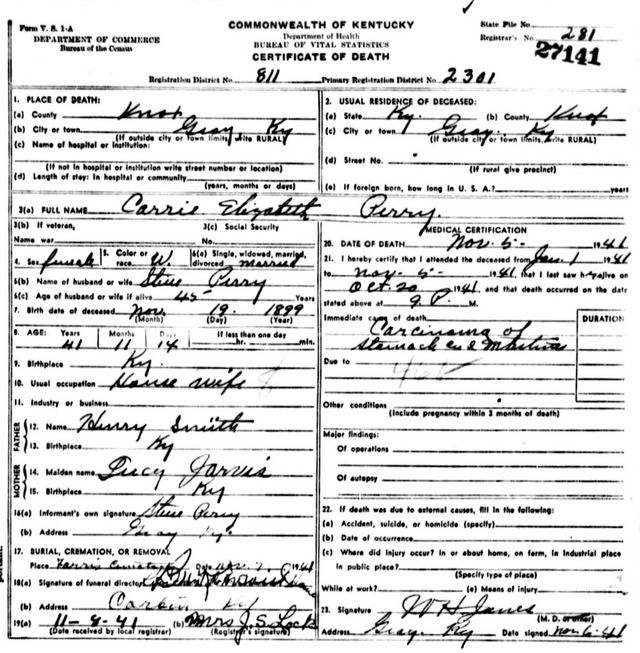 Form V. S. 1-A
DEPARTMENT OF COMMERCE
Bureau of the Census
COMMONWEALTH OF KENTUCKY
Department of Health
BUREAU OF VITAL STATISTICS
CERTIFICATE OF DEATH
State File No.
Registrar's No. 281
27141
Registration District No. 811 Primary Registration District No. 2301
1. PLACE OF DEATH:
(a) County Knox
(b) City or town Gray Ky
(If outside city or town limits, write RURAL)
(c) Name of hospital or institution:
(If not in hospital or institution write street number or location)
(d) Length of stay: In hospital or community
(years, months or days)
2. USUAL RESIDENCE OF DECEASED:
(a) State Ky. (b) County Knox
(c) City or town Gray Ky
(If outside city or town limits, write RURAL)
(d) Street No.
(If rural give precinct)
(e) If foreign born, how long in U. S. A.? years
3(a) FULL NAME Carrie Elizabeth Perry.
3(b) If veteran,
Name war
3(c) Social Security
No.
4. Sex female 5. Color or race W. 6(a) Single, widowed, married, divorced married
6(b) Name of husband or wife Steve Perry
6(c) Age of husband or wife if alive 45 Years
7. Birth date of deceased Nov. 19. 1899
(Month) (Day) (Year)
8. AGE: Years Months Days If less than one day
41 11 14 hr. min.
9. Birthplace Ky.
10. Usual occupation House wife
11. Industry or business
FATHER
12. Name Henry Smith
13. Birthplace Ky
MOTHER
14. Maiden name Lucy Jarvis
15. Birthplace Ky
16(a) Informant's own signature Steve Perry
(b) Address Gray Ky.
17. BURIAL, CREMATION, OR REMOVAL
Place Cemetery Date Nov. 7, 1941
18(a) Signature of funeral director
(b) Address Corbin Ky
19(a) 11-8-41 (b) Mrs J. S. Lock
(Date received by local registrar) (Registrar's signature)
MEDICAL CERTIFICATION
20. DATE OF DEATH Nov. 5- 1941
21. I hereby certify that I attended the deceased from Jan. 1 1941
to Nov- 5- 1941, that I last saw h alive on
Oct. 20 1941, and that death occurred on the date
stated above at 9 P. M.
Immediate cause of death
DURATION
Carcinoma of
Stomach
Due to
Other conditions
(Include pregnancy within 3 months of death)
Major findings:
Of operations
Of autopsy
22. If death was due to external causes, fill in the following:
(a) Accident, suicide, or homicide (specify)
(b) Date of occurrence
(c) Where did injury occur? In or about home, on farm, in industrial place
In public place?
(Specify type of place)
While at work? (e) Means of injury
23. Signature W H Jones
(M. D. or other)
Address Gray, Ky Date signed Nov-6-41